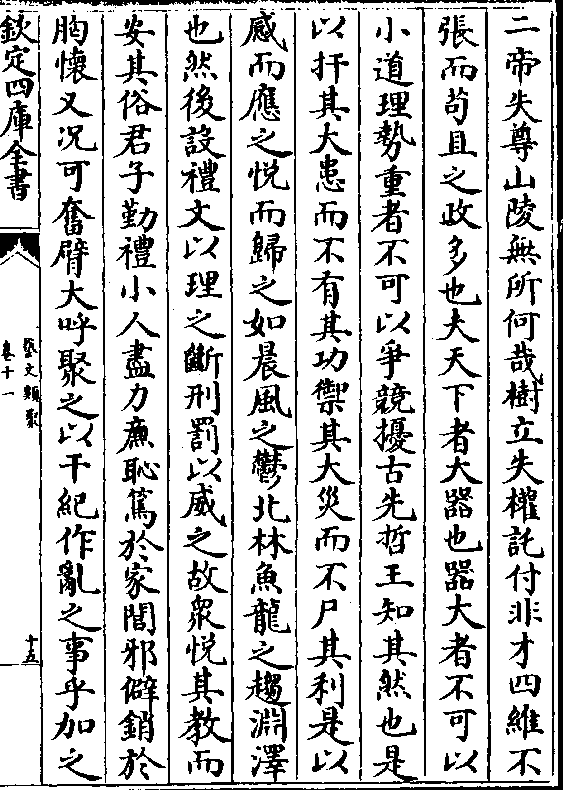 二帝失尊山陵無所何哉樹立失權託付非才四維不
張而苟且之政多也夫天下者大器也器大者不可以
小道理勢重者不可以爭競擾古先哲王知其然也是
以扞其大患而不有其功禦其大災而不尸其利是以
感而應之悦而歸之如晨風之鬱北林魚龍之趨淵澤
也然後設禮文以理之斷刑罰以威之故衆悦其教而
安其俗君子勤禮小人盡力廉恥篤於家閭邪僻銷於
胸懷又况可奮臂大呼聚之以干紀作亂之事乎加之
欽定四庫全書
藝文類聚
卷十一
十五